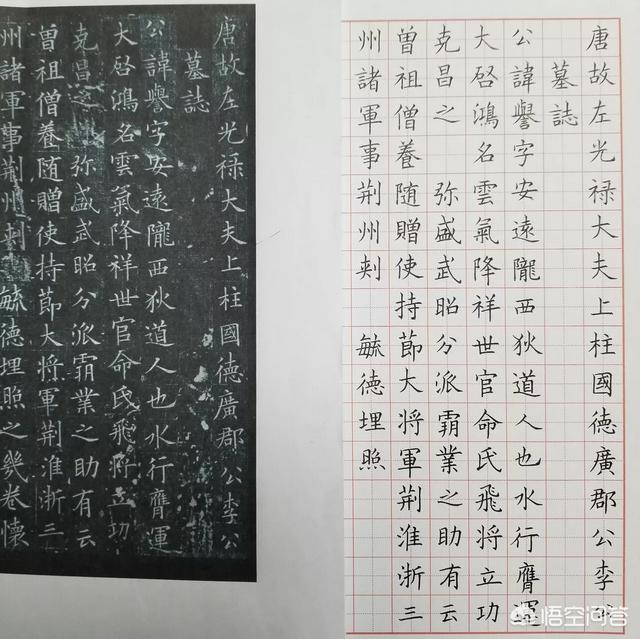 唐故左光禄大夫上柱國德廣郡公李公
墓誌
公諱譽字安遠隴西狄道人也水行膺運
大启鴻名雲氣降祥世官命氏飛将立功
克昌之 弥盛武昭分派霸業之助有云
曽祖僧養随贈使持莭大将軍荆淮浙三
州諸軍事荆州刾 毓德埋照之幾卷懷
唐故左光禄大夫上柱國德廣郡公李公
墓誌
公諱譽字安遠隴西狄道人也水行膺運
大启鴻名雲氣降祥世官命氏飛将立功
克昌之 弥盛武昭分派霸業之助有云
曽祖僧養随贈使持莭大将軍荆淮浙三
州諸軍事荆州刾 毓德埋照
悟空问答